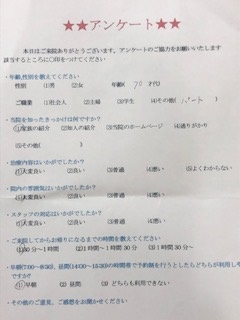 ★★アンケート★★
本日はご来院ありがとうございます。アンケートのご協力をお願いいたします
該当するところに○印をつけてください
・年齢,性別を教えてください
性別 (1)男 (2)女 年齢( 70 才代)
ご職業 (1)社会人 (2)主婦 (3)学生 (4)その他( パート )
・当院を知ったきっかけは何ですか?
(1)家族の紹介 (2)知人の紹介 (3)当院のホームページ (4)通りがかり
(5)その他( )
・治療内容はいかがでしたか?
(1)大変良い (2)良い (3)普通 (4)悪い (5)よくわからない
・院内の雰囲気はいかがでしたか?
(1)大変良い (2)良い (3)普通 (4)悪い
・スタッフの対応はいかがでしたか?
(1)大変良い (2)良い (3)普通 (4)悪い
・ご来院してからお帰りになるまでの時間を教えてください
(1)30分~1時間 (2)1時間~1時間30分 (3)1時間30分~
・早朝(7:00~8:30)、昼間(14:00~15:30)の時間帯で予約制を行うとしたらどちらが利用しや
(1)早朝 (2)昼間 (3)どちらも利用できない
・その他のご意見、ご感想をお聞かせください